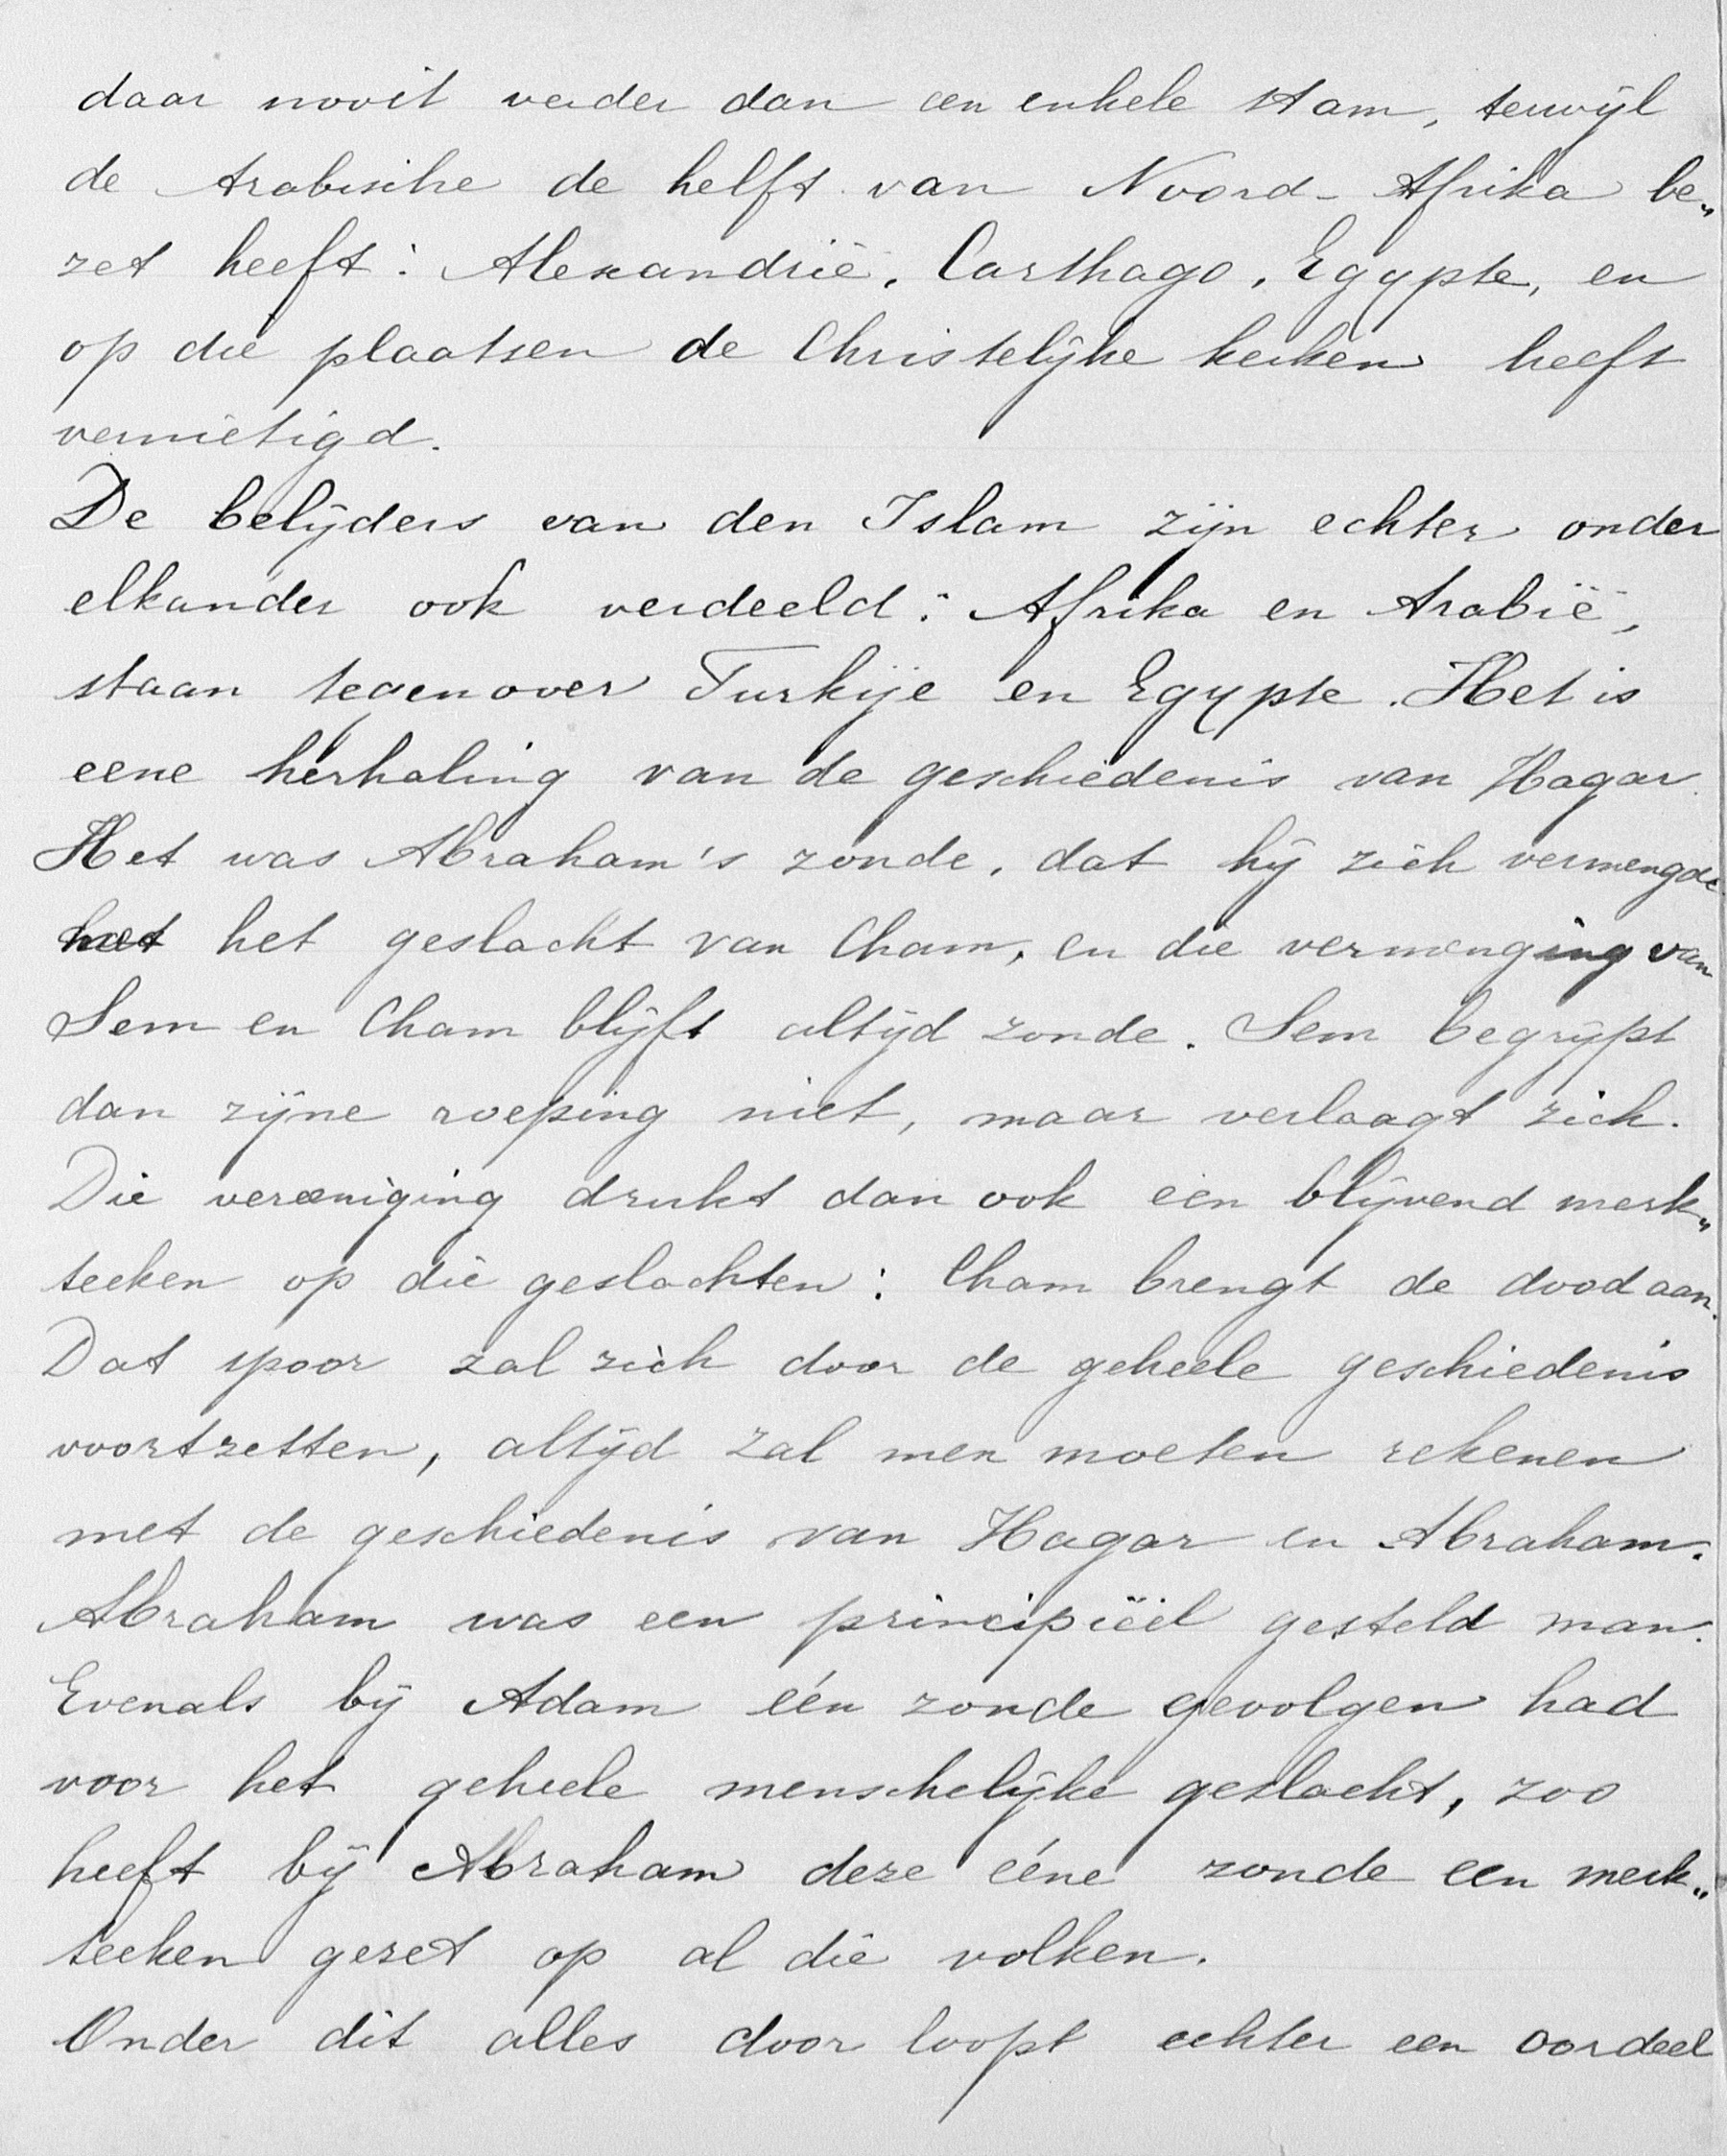 daar nooit verder dan een enkele stam, terwijl
de Arabische de helft van Noord-Afrika be„
zet heeft: Alexandrië, Carthago, Egypte, en
op die plaatsen de Christelijke kerken heeft
vernietigd.
De belijders van den Islam zijn echter onder
elkander ook verdeeld: Afrika en Arabië,
staan tegenover Turkije en Egypte. Het is
eene herhaling van de geschiedenis van Hagar.
Het was Abraham's zonde, dat hij zich vermengde
met het geslacht van Cham, en die vermenging van
Sem en Cham blijft altijd zonde. Sem begrijpt
dan zijne roeping niet, maar verlaagt zich.
Die vereeniging drukt dan ook een blijvend merk„
teeken op die geslachten: Cham brengt de dood aan.
Dat spoor zal zich door de geheele geschiedenis
voortzetten, altijd zal men moeten rekenen
met de geschiedenis van Hagar en Abraham.
Abraham was een principiëel gesteld man.
Evenals bij Adam één zonde gevolgen had
voor het geheele menschelijke geslacht, zoo
heeft bij Abraham deze ééne zonde een merk„
teeken gezet op al die volken.
Onder dit alles door loopt echter een oordeel